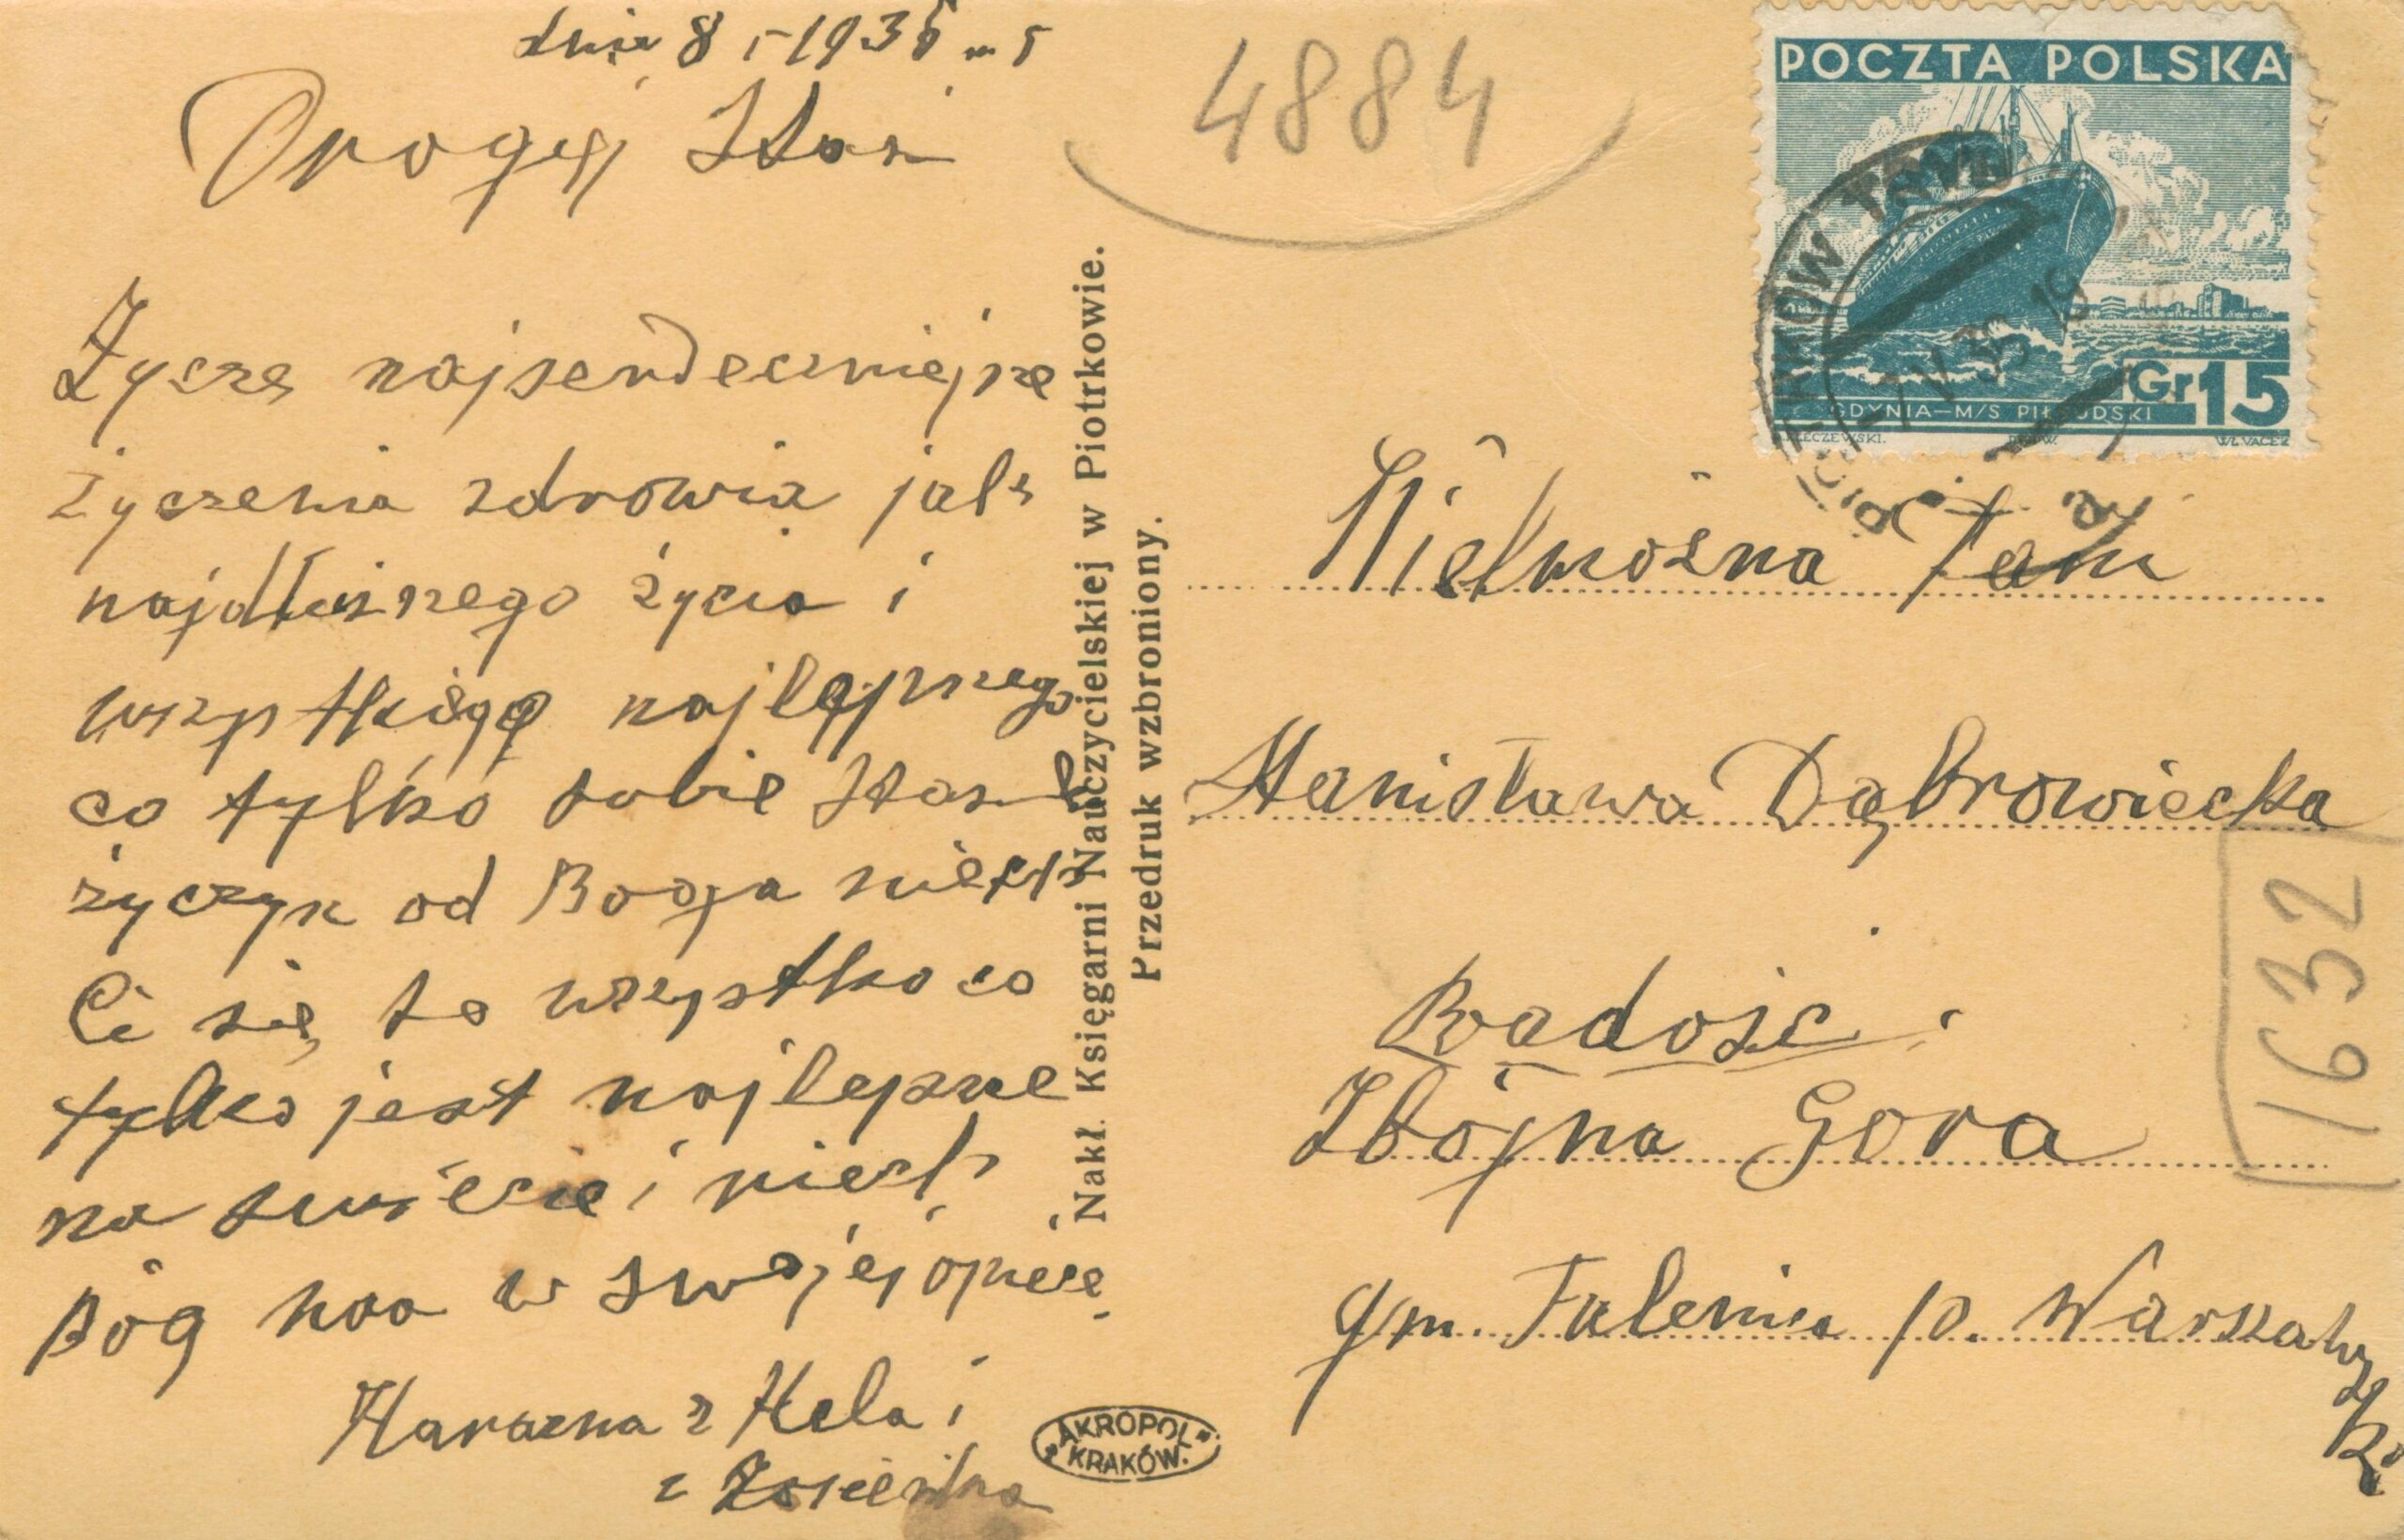 dnia 8 5 1936 r
Drogiej Stasi
Życzę najserdeczniejsze
życzenia zdrowia jak
najdłuszszego życia i
wszystkiego najlepszego
co tylko sobie Stasiu
życzysz od Boga niech
Ci się to wszystko co
tylko jest najlepsze
na świecie i niech
Bóg ma w swojej opiece
z Hela i
z
Nakł. Księgarni Nauczycielskiej w Piotrkowie.
Przedruk wzbroniony.
AKROPOL
KRAKÓW.
4884
POCZTA POLSKA
Gr 15
GDYNIA—M/S PIŁSUDSKI
WŁ. VACEK
Wielmożna Pani
Stanisława Dąbrowiecka
Radość
Zbójna Gora
gm. Falenica p. Warszawą
1632